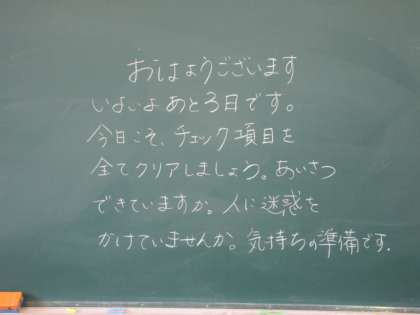 おはようございます
いよいよあと3日です。
今日こそ、チェック項目を
全てクリアしましょう。あいさつ
できていますか。人に迷惑を
かけていませんか。気持ちの準備です.